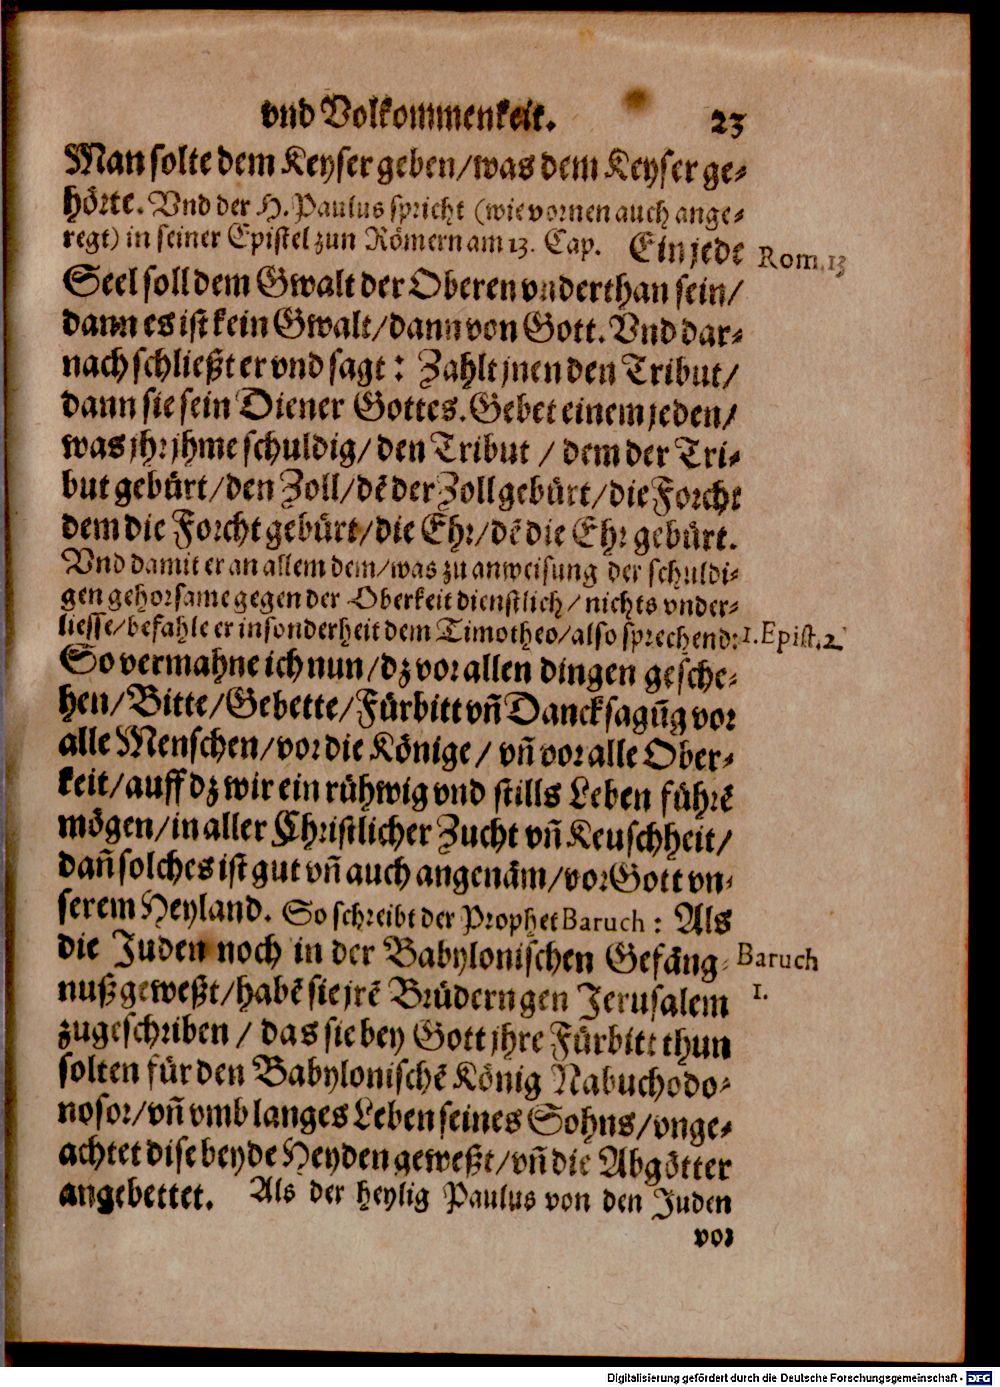 vnd Volkommenkeit. 23
Man solte dem Keyser geben/was dem Keyser ge-
hörte. Vnd der H. Paulus spricht (wie vornen auch ange-
regt) in seiner Epistel zun Römern am 13. Cap. Ein jede
Rom. 13
Seel soll dem Gwalt der Oberen vnderthan sein/
dann es ist kein Gwalt/dann von Gott. Vnd dar-
nach schließt er vnd sagt: Zahlt jnen den Tribut/
dann sie sein Diener Gottes. Gebet einem jeden/
was jhr jhme schuldig/den Tribut / dem der Tri-
but gebürt/den Zoll/dē der Zoll gebürt/die Forcht
dem die Forcht gebürt/die Ehr/dē die Ehr gebürt.
Vnd damit er an allem dem/was zu anweisung der schuldi-
gen gehorsame gegen der Oberkeit dienstlich/nichts vnder-
liesse/befahle er insonderheit dem Timotheo/also sprechend:
1. Epist. 2.
So vermahne ich nun/dz vor allen dingen gesche-
hen/Bitte/Gebette/Fürbitt vñ Dancksagūg vor
alle Menschen/vor die Könige/ vñ vor alle Ober-
keit/auff dz wir ein rühwig vnd stills Leben führē
mögen/in aller Christlicher Zucht vñ Keuschheit/
dañ solches ist gut vñ auch angenäm/vor Gott vn-
serem Heyland. So schreibt der Prophet Baruch: Als
die Juden noch in der Babylonischen Gefäng-
Baruch
nuß geweßt/habē sie jrē Brüdern gen Jerusalem
1.
zugeschriben / das sie bey Gott jhre Fürbitt thun
solten für den Babylonischē König Nabuchodo-
nosor/vñ vmb langes Leben seines Sohns/vnge-
achtet dise beyde Heyden geweßt/vñ die Abgötter
angebettet. Als der heylig Paulus von den Juden
vor
Digitalisierung gefördert durch die Deutsche Forschungsgemeinschaft - DFG